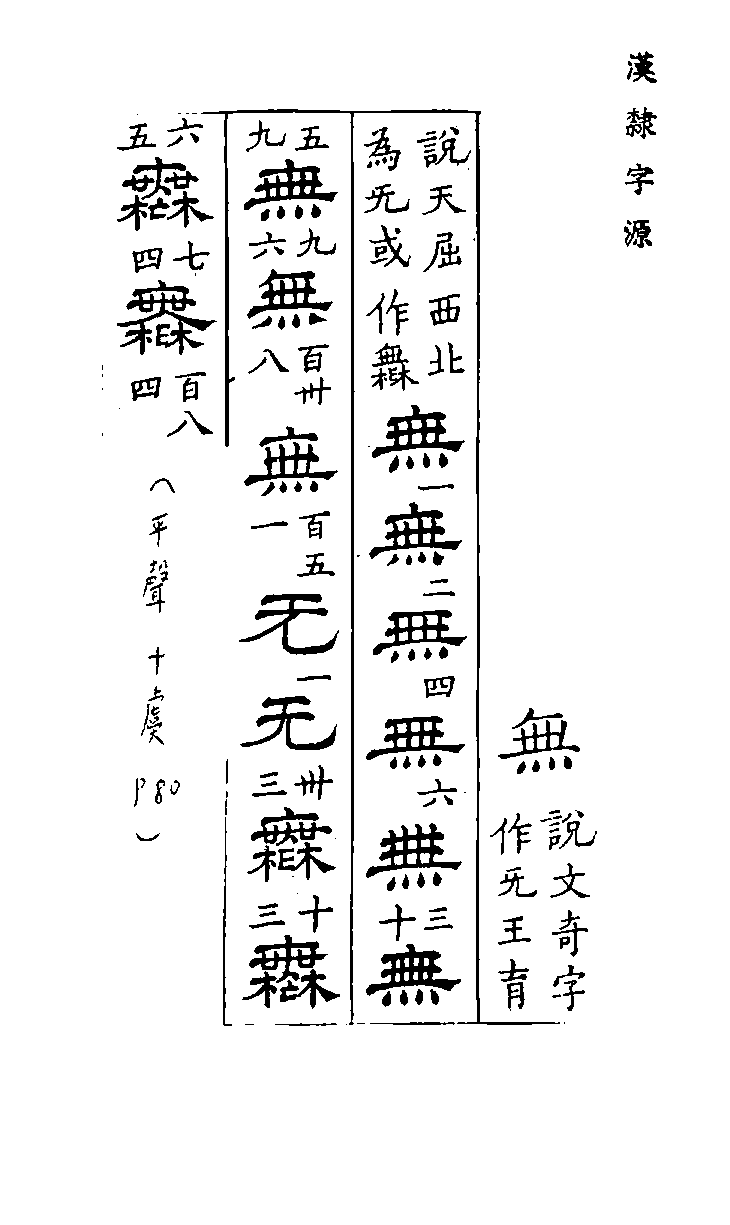 漢隸字源
無
說文奇字
作无王育
說天屈西北
為无或作
無一無二無四無六無三十無
五九無九六無百卅八無百五一无一无卅三橆十三橆
六五橆七四橆百八四
（平聲 十虞 P80）